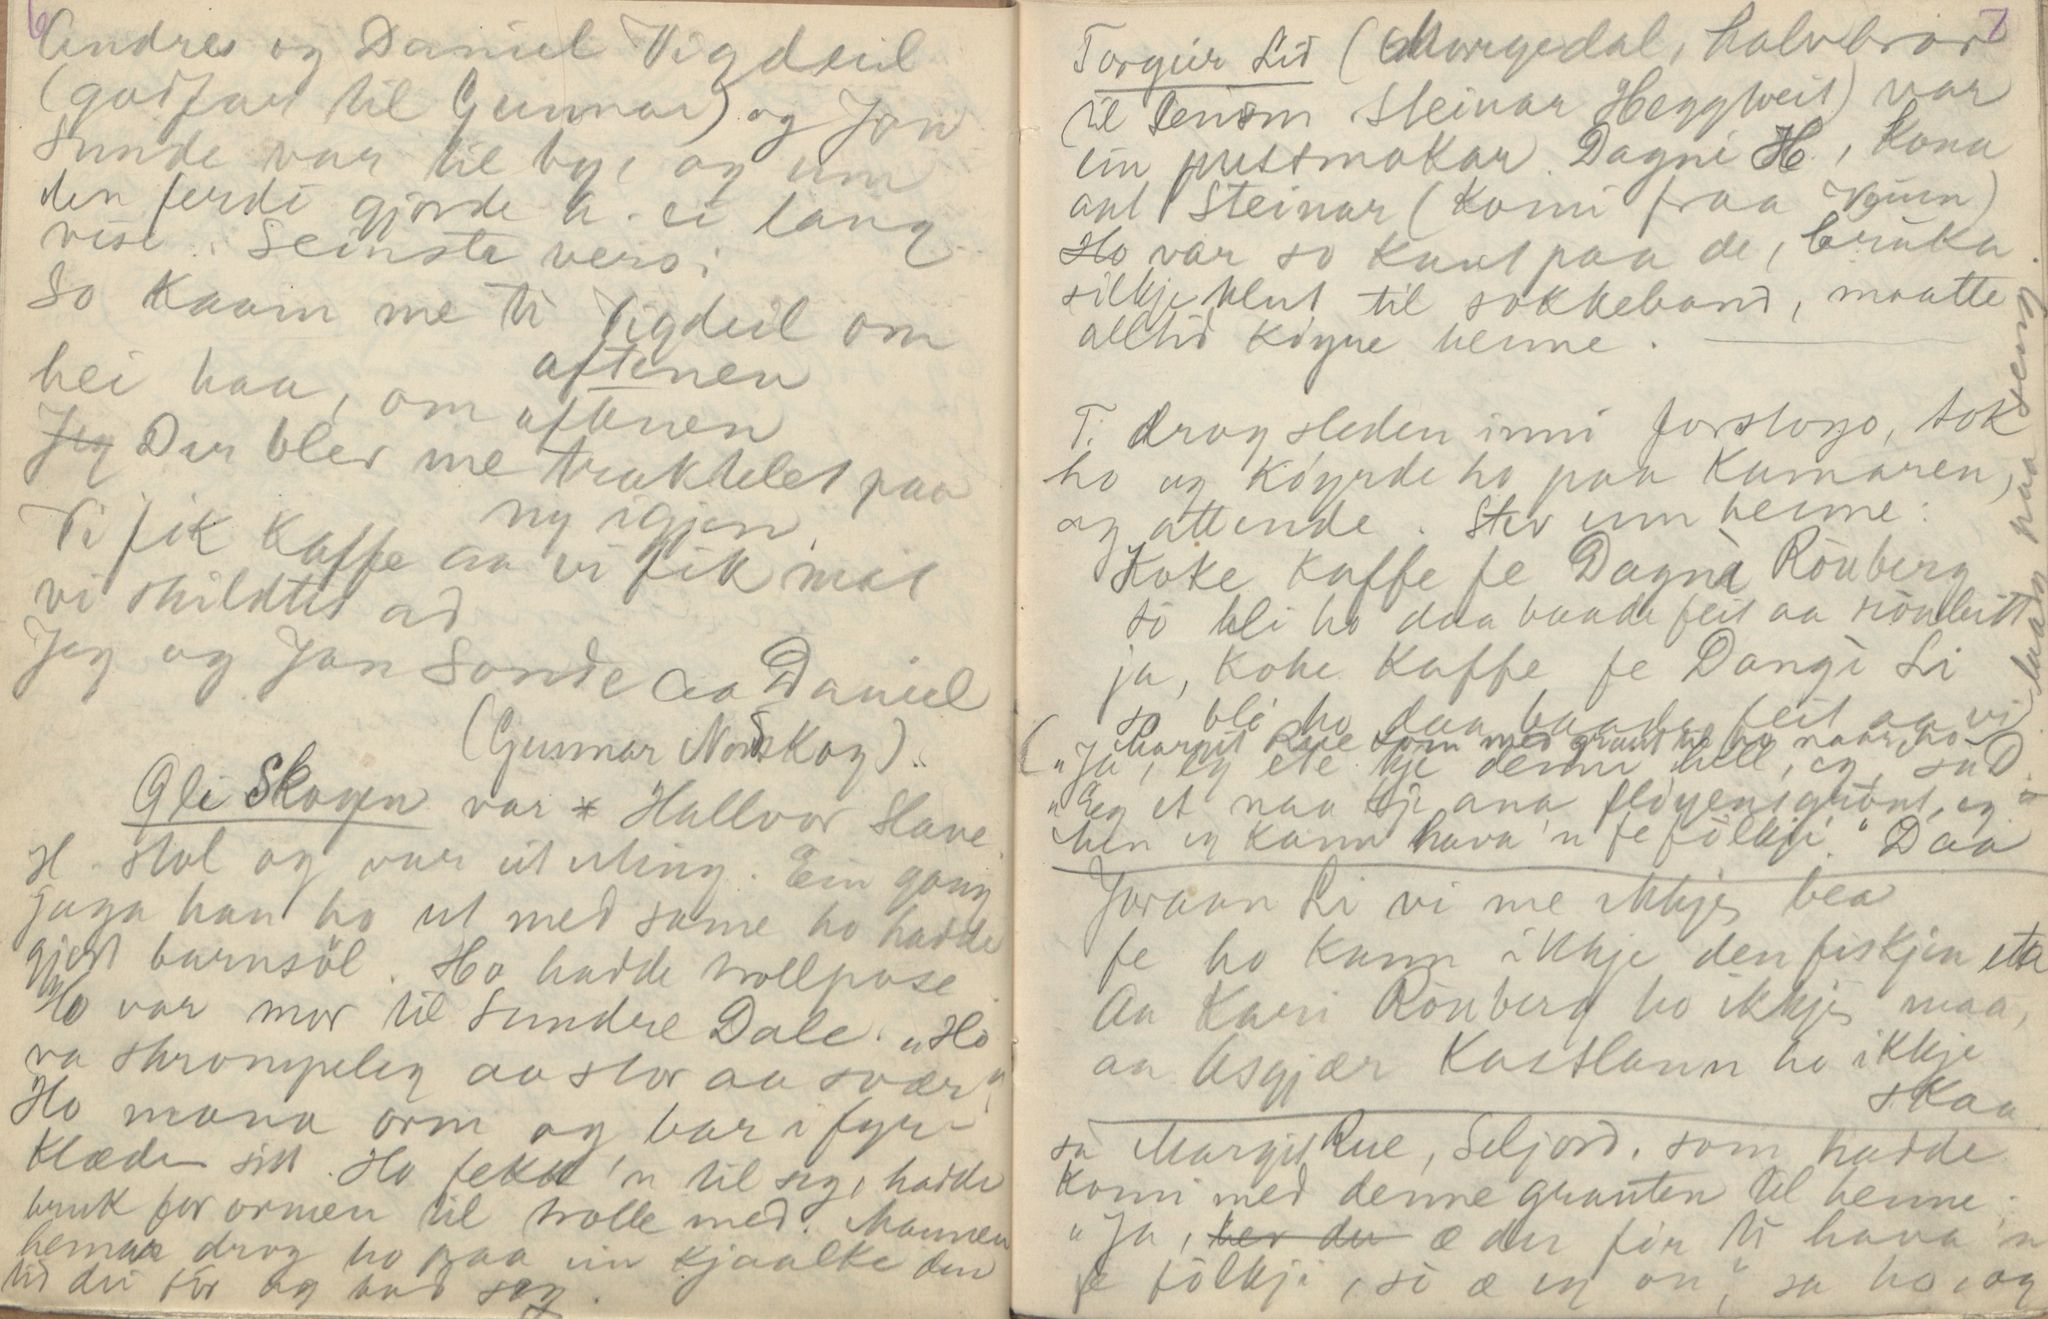 6
Andres og Daniel Vigdeil
(godfar til Gunnar) og Jon
Sunde var til by, og um
den ferdi gjorde A. ei lang
vise. Seinste vers:
So kaam me ti Vigdeil om
aftenen
hei haa, om aftenen
Jeg Der blev me traktelet paa
ny igjen
Vi fik kaffe aa vi fik mat
vi skildtes ad
Jeg og Jon Sonde aa Daniel
(Gunnar Nordskog)."
Gli Skogen var * Hallvor Have
H. stol og var ut Ming. Ein gong
jaga han ho ut med same ho hadde
gjort barnsöl. Ho hadde trollpose.
Ho var mor til Sundre Dale. "Ho
va skrompeleg aa stor aa svær,"
Ho mana orm og bar i fyr-
klæde sitt. Ho fekk 'n til seg, hadde
bruk for ormen til trolle med. Mannen
hennar drog ho paa ein kjaalke den
tid dei for og bad seg.
7
Torgeir Li (Morgedal, halvbror
til lensm Steinar Heggtveit) var
ein pussmakar. Dagni H., kona
aat Steinar (komi fraa
Ho var so kaut paa de, bruka
silkjeklut til sokkeband, maatte
alltid köyre henne.
T. drog sleden inni forstogo, tok
ho og köyrde ho paa kamaren,
og attende. Stev um henne:
Koke kaffe fe Dagni Rönberg
so bli ho daa baade feit aa
ja, koke kaffe fe Dangi Li
so bli ho daa baade feit aa vi
(Margit Rue kom med graut til ho naar ho laag paa seng
"Ja, eg ete kje denni hell, eg, sa D.
"Eg et naa kji ana flöyensgraut, eg
Men eg kann hava 'n fe fölkji." Daa
Joraan Li vi me ikkje bea
fe ho kann ikkje den fiskjen eta
Aa Kari Rönberg ho ikkje maa,
aa Asgjær Kastlann ho ikkje
skaa
sa Margit Rue, Seljord, som hadde
komi med denne grauten til henne:
"Ja, her du æ du för ti hava 'n
fe fölkji, so æ eg on", sa ho, og